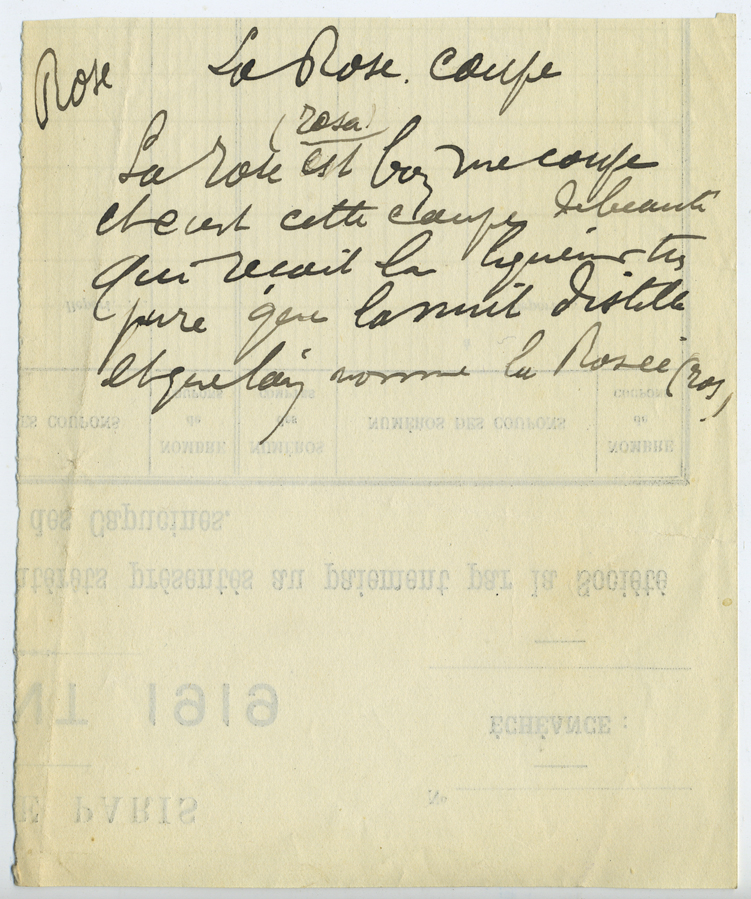 Rose
La Rose. Coupe
(rosa)
La rose est bien une coupe
et c'est cette coupe de beauté
qui reçoit la liqueur très
pure que la nuit distille
et que l'on nomme la Rosée (ros)
DES COUPONS
NOMBRE
de
COUPONS
NUMÉROS
des
NUMÉROS DES COUPONS
NOMBRE
de
COUPONS
des Capucines.
intérêts présentés au paiement par la Société
1919
ÉCHÉANCE :
PARIS
No